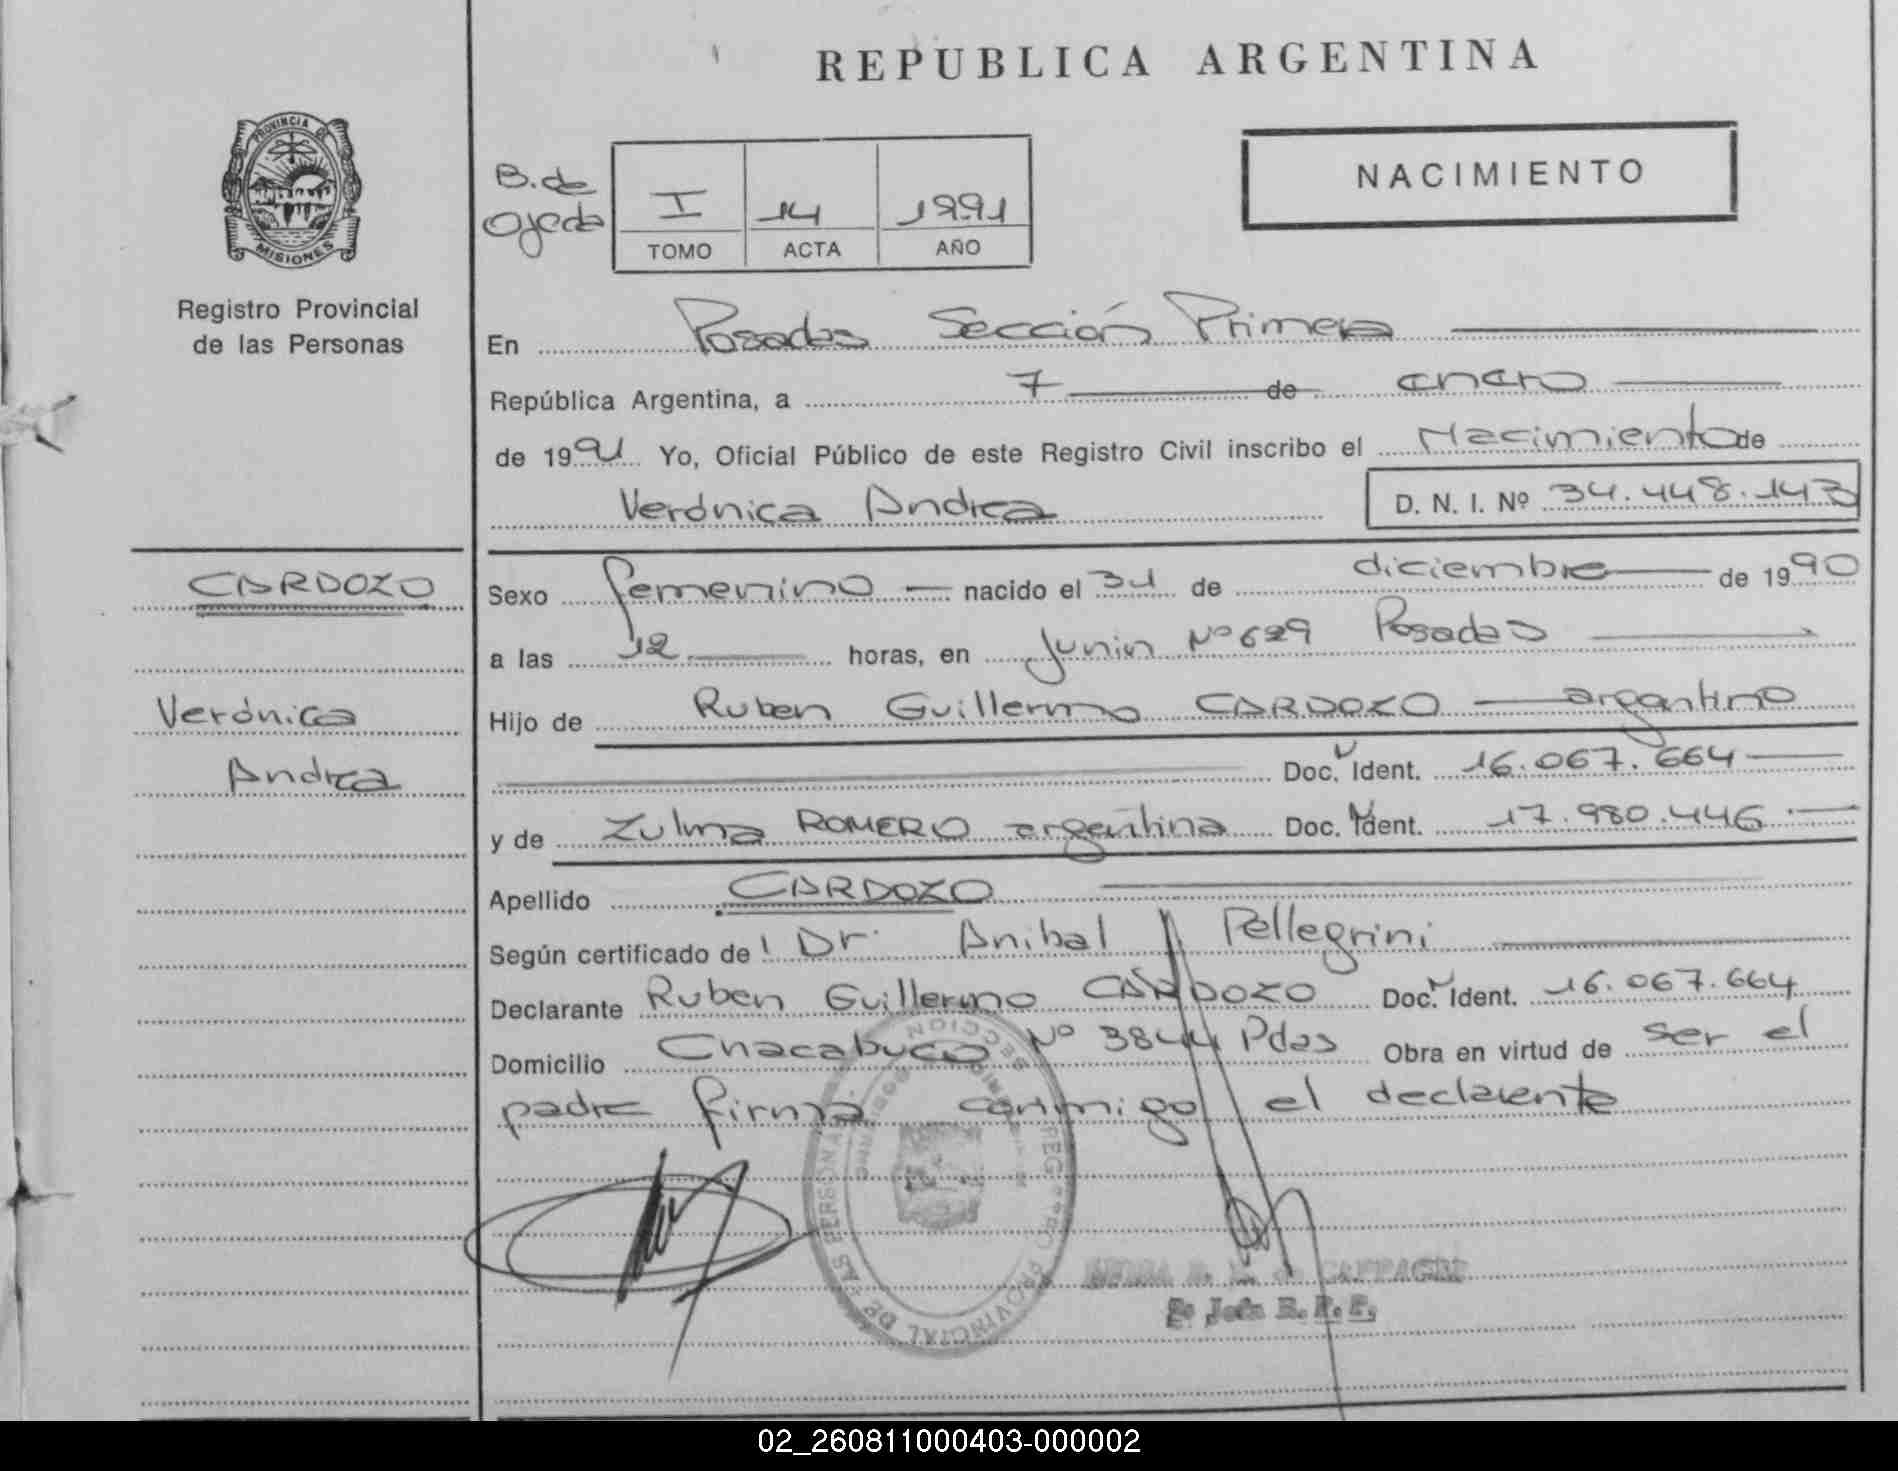 REPUBLICA ARGENTINA
PROVINCIA DE
MISIONES
Registro Provincial
de las Personas
B. de
Ojeda
I 14 1991
TOMO ACTA AÑO
NACIMIENTO
En Posadas Sección Primera
República Argentina, a 7 de enero
de 1991 Yo, Oficial Público de este Registro Civil inscribo el Nacimiento de
Verónica Andrea D. N. I. Nº 34.448.143
CARDOZO
Verónica
Andrea
Sexo femenino nacido el 31 de diciembre de 1990
a las 12 horas, en Junin Nº 629 Posadas
Hijo de Ruben Guillermo CARDOZO argentino
Doc. Ident. 16.067.664
y de Zulma ROMERO argentina Doc. Ident. 17.980.446.
Apellido CARDOZO
Según certificado de Dr. Anibal Pellegrini
Declarante Ruben Guillermo CARDOZO Doc. Ident. 16.067.664
Domicilio Chacabuco Nº 3844 Pdas Obra en virtud de ser el
padre firma conmigo el declarente
REGISTRO PROVINCIAL DE LAS PERSONAS
SECCION
de CAFFAGNI
2º Jefe R. P. P.
02_260811000403-000002